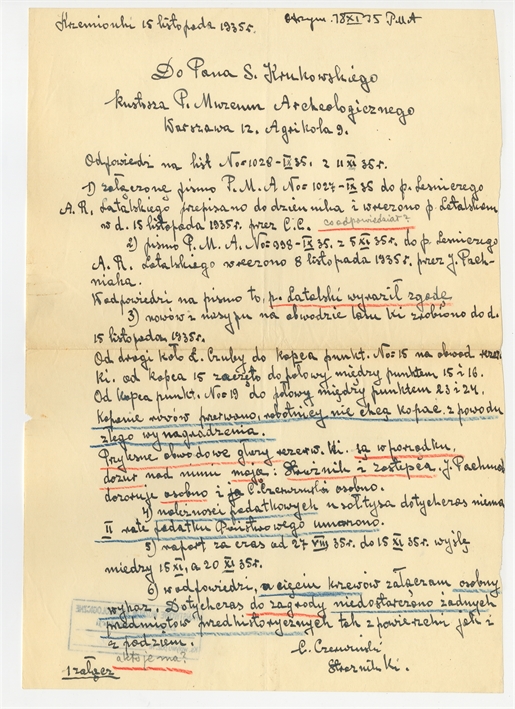 Krzemionki 15 listopada 1935r.
otrzym. 18 XI 35 P.M.A
Do Pana S. Krukowskiego
Kustosza P. Muzeum Archeologicznego
Warszawa 12. Agrikola 9.
Odpowiedzi na list No=1028-IX 35. z 11 XI 35r.
1) załączone pismo P.M.A No=1027-IX 35 do p. Leśniczego
A.R. Latalskiego przepisano do dziennika i wręczono p Latalskiem
w d. 15 listopada 1935r. przez C.C. co odpowiedział?
2) pismo P.M.A. No=998-IX 35. z 5 XI 35r. do p. Leśniczego
A.R. Latalskiego wręczono 8 listopada 1935r. przez J. Pach-
niaka.
W odpowiedzi na pismo to, p. Latalski wyraził zgodę
3) rowów i nasypu na obwodzie lasu Ki zrobiono do d.
15 listopada 1935r.
Od drogi koło L. Czuby do kopca punkt. No=15 na obwod rezer.
Ki. od kopca 15 zaczęto do połowy między punktem 15 i 16.
Od kopca punkt. No=19 do połowy między punktem 23 i 24.
Kopanie rowów przerwano, robotnicy nie chcą kopać z powodu
złego wynagrodzenia.
Pryzmy obwodowe główne rezerw. Ki. są w porządku,
dozór nad nimi mają: Strażnik i zastępca. J. Pachniak
dozoruje osobno i C. Czerwiński osobno.
4) należności podatkowych u sołtysa dotychczas niema
II ratę podatku Państwowego umorzono.
5) raport za czas od 27 VIII 35r. do 15 XI 35r. wyślę
między 15 XI, a 20 XI 35r.
6) w odpowiedzi, o cięciu krzewów załączam osobny
wykaz. Dotychczas do zagrody niedostarczono żadnych
przedmiotów przedhistorycznych tak z powierzchni jak i
z podziem.
a któż je ma?
1 załącz
C. Czerwiński
Strażnik Ki.